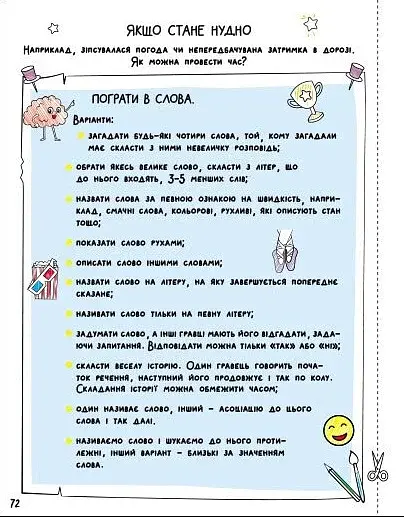 ЯКЩО СТАНЕ НУДНО
НАПРИКЛАД, ЗІПСУВАЛАСЯ ПОГОДА ЧИ НЕПЕРЕДБАЧУВАНА ЗАТРИМКА В ДОРОЗІ.
ЯК МОЖНА ПРОВЕСТИ ЧАС?
ПОГРАТИ В СЛОВА.
ВАРІАНТИ:
ЗАГАДАТИ БУДЬ-ЯКІ ЧОТИРИ СЛОВА, ТОЙ, КОМУ ЗАГАДАЛИ
МАЄ СКЛАСТИ З НИМИ НЕВЕЛИЧКУ РОЗПОВІДЬ;
ОБРАТИ ЯКЕСЬ ВЕЛИКЕ СЛОВО, СКЛАСТИ З ЛІТЕР, ЩО
ДО НЬОГО ВХОДЯТЬ, 3-5 МЕНШИХ СЛІВ;
НАЗВАТИ СЛОВА ЗА ПЕВНОЮ ОЗНАКОЮ НА ШВИДКІСТЬ, НАПРИ-
КЛАД, СМАЧНІ СЛОВА, КОЛЬОРОВІ, РУХЛИВІ, ЯКІ ОПИСУЮТЬ СТАН
ТОЩО;
ПОКАЗАТИ СЛОВО РУХАМИ;
ОПИСАТИ СЛОВО ІНШИМИ СЛОВАМИ;
НАЗВАТИ СЛОВО НА ЛІТЕРУ, НА ЯКУ ЗАВЕРШУЄТЬСЯ ПОПЕРЕДНЄ
СКАЗАНЕ;
НАЗИВАТИ СЛОВО ТІЛЬКИ НА ПЕВНУ ЛІТЕРУ;
ЗАДУМАТИ СЛОВО, А ІНШІ ГРАВЦІ МАЮТЬ ЙОГО ВІДГАДАТИ, ЗАДА-
ЮЧИ ЗАПИТАННЯ. ВІДПОВІДАТИ МОЖНА ТІЛЬКИ «ТАК» АБО «НІ»;
СКЛАСТИ ВЕСЕЛУ ІСТОРІЮ. ОДИН ГРАВЕЦЬ ГОВОРИТЬ ПОЧА-
ТОК РЕЧЕННЯ, НАСТУПНИЙ ЙОГО ПРОДОВЖУЄ І ТАК ПО КОЛУ.
СКЛАДАННЯ ІСТОРІЇ МОЖНА ОБМЕЖИТИ ЧАСОМ;
ОДИН НАЗИВАЄ СЛОВО, ІНШИЙ - АСОЦІАЦІЮ ДО ЦЬОГО
СЛОВА І ТАК ДАЛІ.
НАЗИВАЄМО СЛОВО І ШУКАЄМО ДО НЬОГО ПРОТИ-
ЛЕЖНІ, ІНШИЙ ВАРІАНТ - БЛИЗЬКІ ЗА ЗНАЧЕННЯМ
СЛОВА.
72